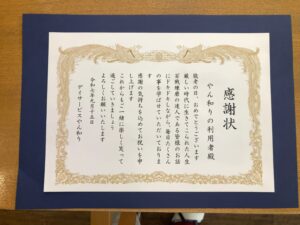 感謝状
やん和りの利用者殿
敬老の日、おめでとうございます
厳しい時代に生きてこられた人生
百戦錬磨の達人である皆様のお話
にドキドキしながら、毎日たくさん
の事を学ばせていただいておりま
す
感謝の気持ちを込めてお祝いを申
し上げます
これからもご一緒に楽しく笑って
過ごしていきましょう
よろしくお願いいたします
令和七年九月十五日
デイサービスやん和り